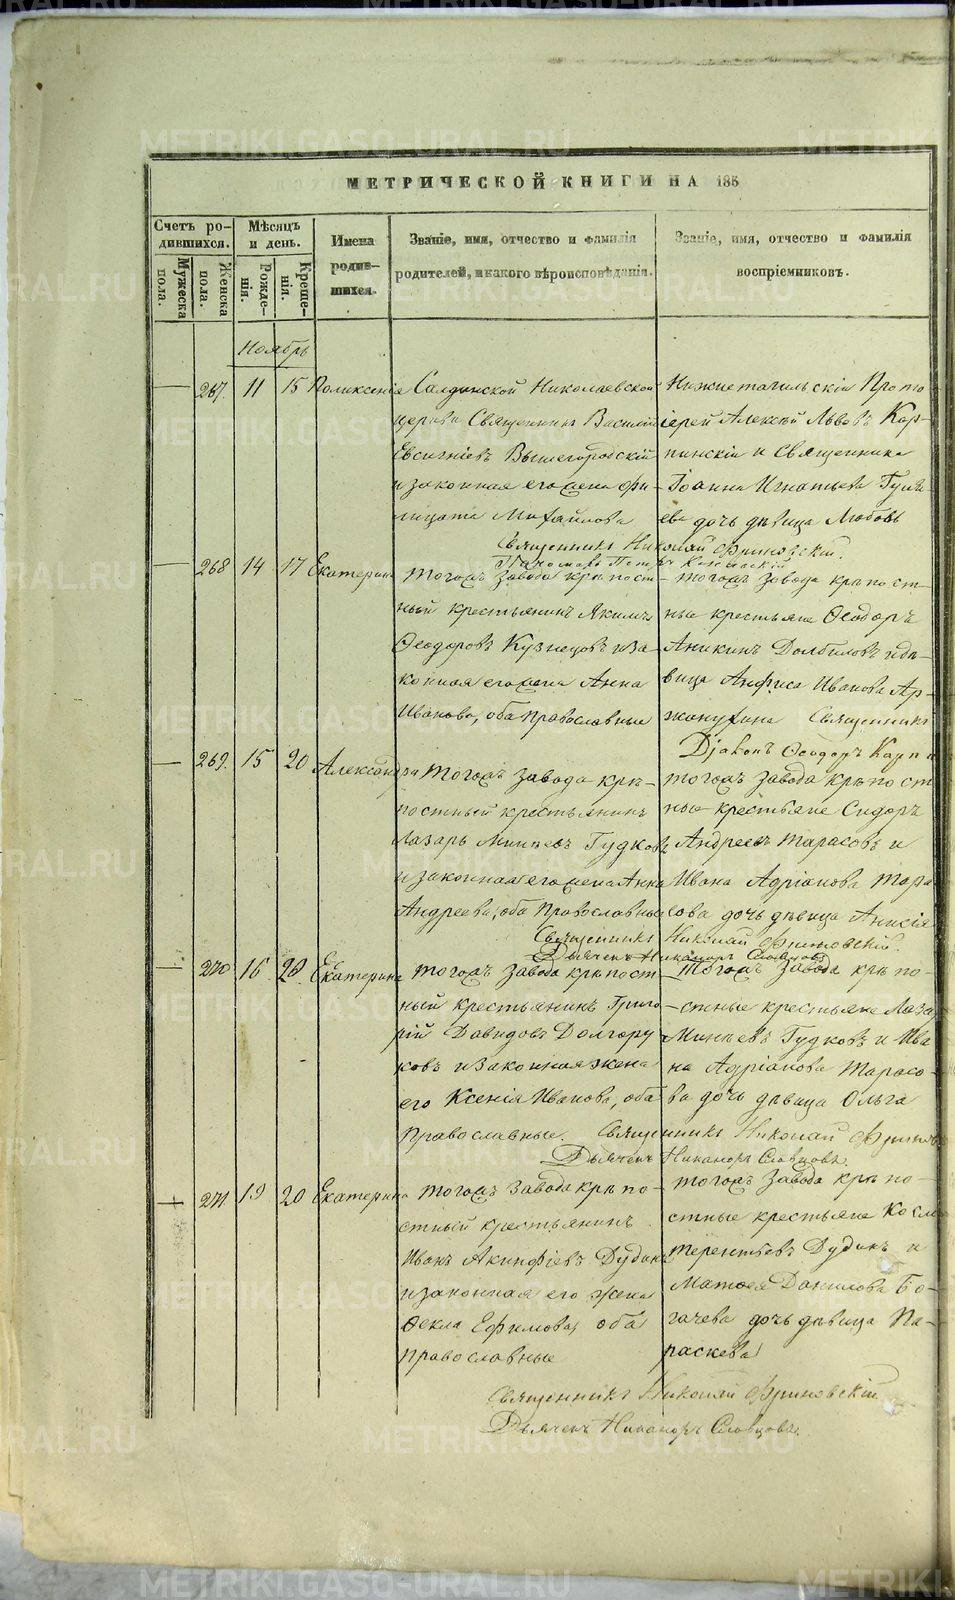 METRIKI.GASO-URAL.RU
МЕТРИЧЕСКОЙ КНИГИ НА 185
Счетъ ро-
дившихся.
Мужеска
пола.
Женска
пола.
Мѣсяцъ
и день.
Рожде-
нія.
Креще-
нія.
Имена
родив-
шихся.
Званіе, имя, отчество и фамилія
родителей, и какого вѣроисповѣданія.
Званіе, имя, отчество и фамилія
воспріемниковъ.
Ноябрь
267. 11 15 Поликсенія
Салдинской Николаевской
церкви Священникъ Василій
Евсигніевъ Вышегородскій
и законная его жена Фи-
лицата Михайлова
Нижнетагильскій Прото
іерей Алексей Львовъ Кар-
пинскій и Священника
Іоанна Игнатьева
дочь дѣвица Любовь
Священникъ Николай Фриновскій.
Пономарь Петръ
268 14 17 Екатерина
Тогожъ завода крѣпост-
ный крестьянинъ Якимъ
Ѳеодоровъ Кузнецовъ и за-
конная его жена Анна
Иванова, оба православные
Тогожъ завода крѣпост-
ные крестьяне Ѳеодоръ
Аникинъ Долбиловъ и дѣ-
вица Анфиса Иванова
Священникъ
Діаконъ Ѳеодоръ Карпи
269. 15 20 Александра
Тогожъ завода крѣ-
постный крестьянинъ
Лазарь Минѣевъ Гудковъ
и законная его жена Анна
Андреева, оба православные
Тогожъ завода крѣпост
ные крестьяне Сидоръ
Андреевъ Тарасовъ и
Ивана Адріанова Тара
сова дочь дѣвица Анисія
Священникъ Николай Фриновскій.
Дьячекъ Никаноръ Словцовъ
270 16 20. Екатерина
Тогожъ завода крѣпост
ный крестьянинъ Григо
рій Давидовъ Долгору
ковъ и законная жена
его Ксенія Иванова, оба
православные.
Тогожъ завода крѣпо-
стные крестьяне Лаза
Минѣевъ Гудковъ и Ива
на Адріанова Тарасо-
ва дочь дѣвица Ольга
Священникъ Николай Фринов
Дьячекъ Никаноръ Словцовъ.
271. 19 20 Екатерина
Тогожъ завода крѣпо-
стный крестьянинъ
Иванъ Акинфіевъ Дудинъ
и законная его жена
Ѳекла Ефимова, оба
православные
Тогожъ завода крѣпо-
стные крестьяне
Терентьевъ Дудинъ и
Матѳея Данилова Бо-
гачева дочь дѣвица Па-
раскева
Священникъ Николай Фриновскій
Дьячекъ Никаноръ Словцовъ.